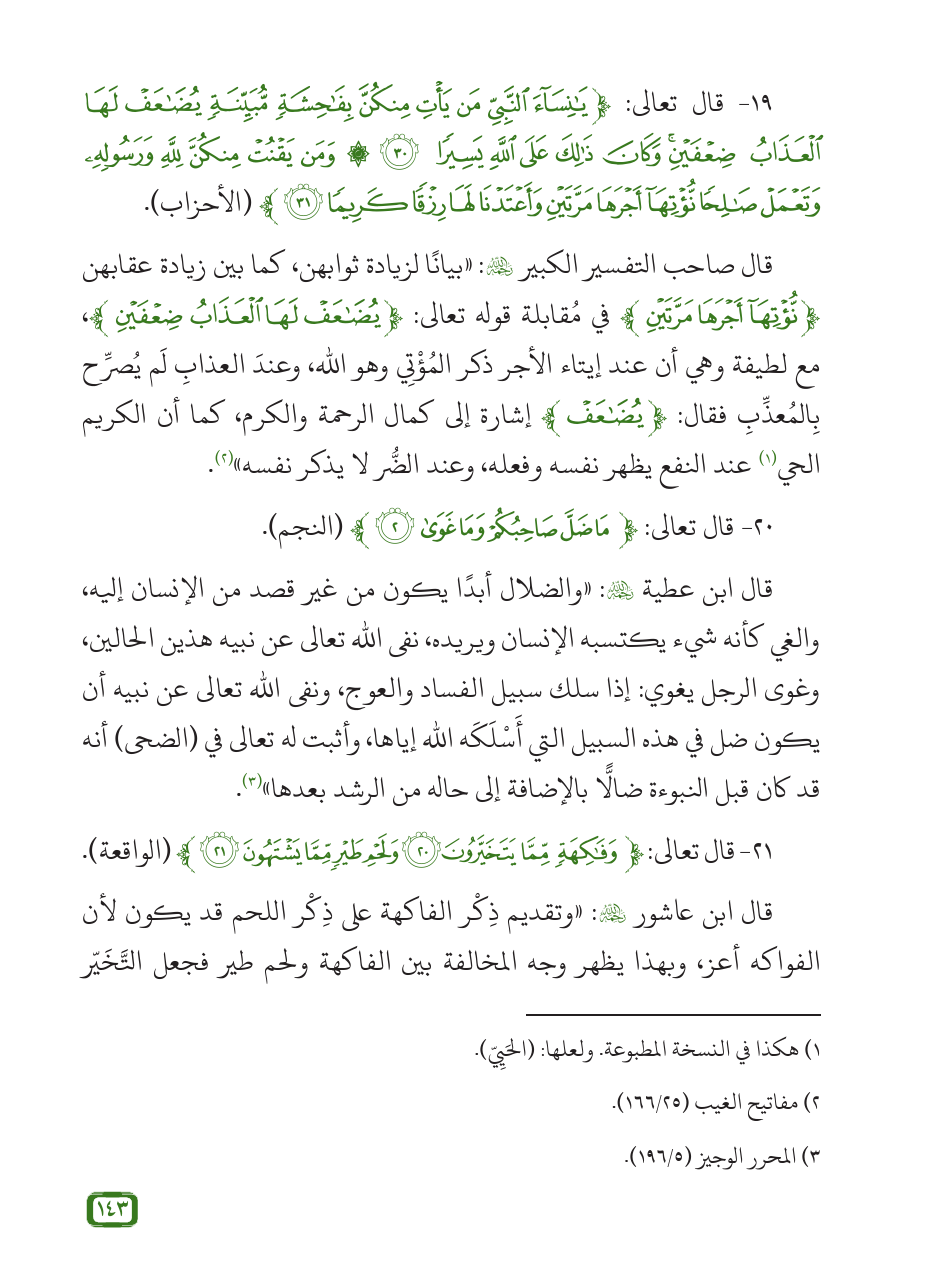 ١٩- قال تعالى: ﴿ يَٰنِسَآءَ ٱلنَّبِيِّ مَن يَأۡتِ مِنكُنَّ بِفَٰحِشَةٖ مُّبَيِّنَةٖ يُضَٰعَفۡ لَهَا
ٱلۡعَذَابُ ضِعۡفَيۡنِۚ وَكَانَ ذَٰلِكَ عَلَى ٱللَّهِ يَسِيرٗا ٣٠ ۞ وَمَن يَقۡنُتۡ مِنكُنَّ لِلَّهِ وَرَسُولِهِۦ
وَتَعۡمَلۡ صَٰلِحٗا نُّؤۡتِهَآ أَجۡرَهَا مَرَّتَيۡنِ وَأَعۡتَدۡنَا لَهَا رِزۡقٗا كَرِيمٗا ٣١ ﴾ (الأحزاب).
قال صاحب التفسير الكبير رحمه الله: «بيانًا لزيادة ثوابهن، كما بين زيادة عقابهن
﴿ نُّؤۡتِهَآ أَجۡرَهَا مَرَّتَيۡنِ ﴾ في مُقابلة قوله تعالى: ﴿ يُضَٰعَفۡ لَهَا ٱلۡعَذَابُ ضِعۡفَيۡنِ ﴾،
مع لطيفة وهي أن عند إيتاء الأجر ذكر المُؤْتِي وهو الله، وعندَ العذابِ لَم يُصرِّح
بِالمُعذِّبِ فقال: ﴿ يُضَٰعَفۡ ﴾ إشارة إلى كمال الرحمة والكرم، كما أن الكريم
الحي(١) عند النفع يظهر نفسه وفعله، وعند الضُّر لا يذكر نفسه»(٢).
٢٠- قال تعالى: ﴿ مَا ضَلَّ صَاحِبُكُمۡ وَمَا غَوَىٰ ٢ ﴾ (النجم).
قال ابن عطية رحمه الله: «والضلال أبدًا يكون من غير قصد من الإنسان إليه،
والغي كأنه شيء يكتسبه الإنسان ويريده، نفى الله تعالى عن نبيه هذين الحالين،
وغوى الرجل يغوي: إذا سلك سبيل الفساد والعوج، ونفى الله تعالى عن نبيه أن
يكون ضل في هذه السبيل التي أَسْلَكَه الله إياها، وأثبت له تعالى في (الضحى) أنه
قد كان قبل النبوءة ضالًّا بالإضافة إلى حاله من الرشد بعدها»(٣).
٢١- قال تعالى: ﴿ وَفَٰكِهَةٖ مِّمَّا يَتَخَيَّرُونَ ٢٠ وَلَحۡمِ طَيۡرٖ مِّمَّا يَشۡتَهُونَ ٢١ ﴾ (الواقعة).
قال ابن عاشور رحمه الله: «وتقديم ذِكْر الفاكهة على ذِكْر اللحم قد يكون لأن
الفواكه أعز، وبهذا يظهر وجه المخالفة بين الفاكهة ولحم طير فجعل التَّخَيّر
١) هكذا في النسخة المطبوعة. ولعلها: (الحَيِيّ).
٢) مفاتيح الغيب (١٦٦/٢٥).
٣) المحرر الوجيز (١٩٦/٥).
١٤٣